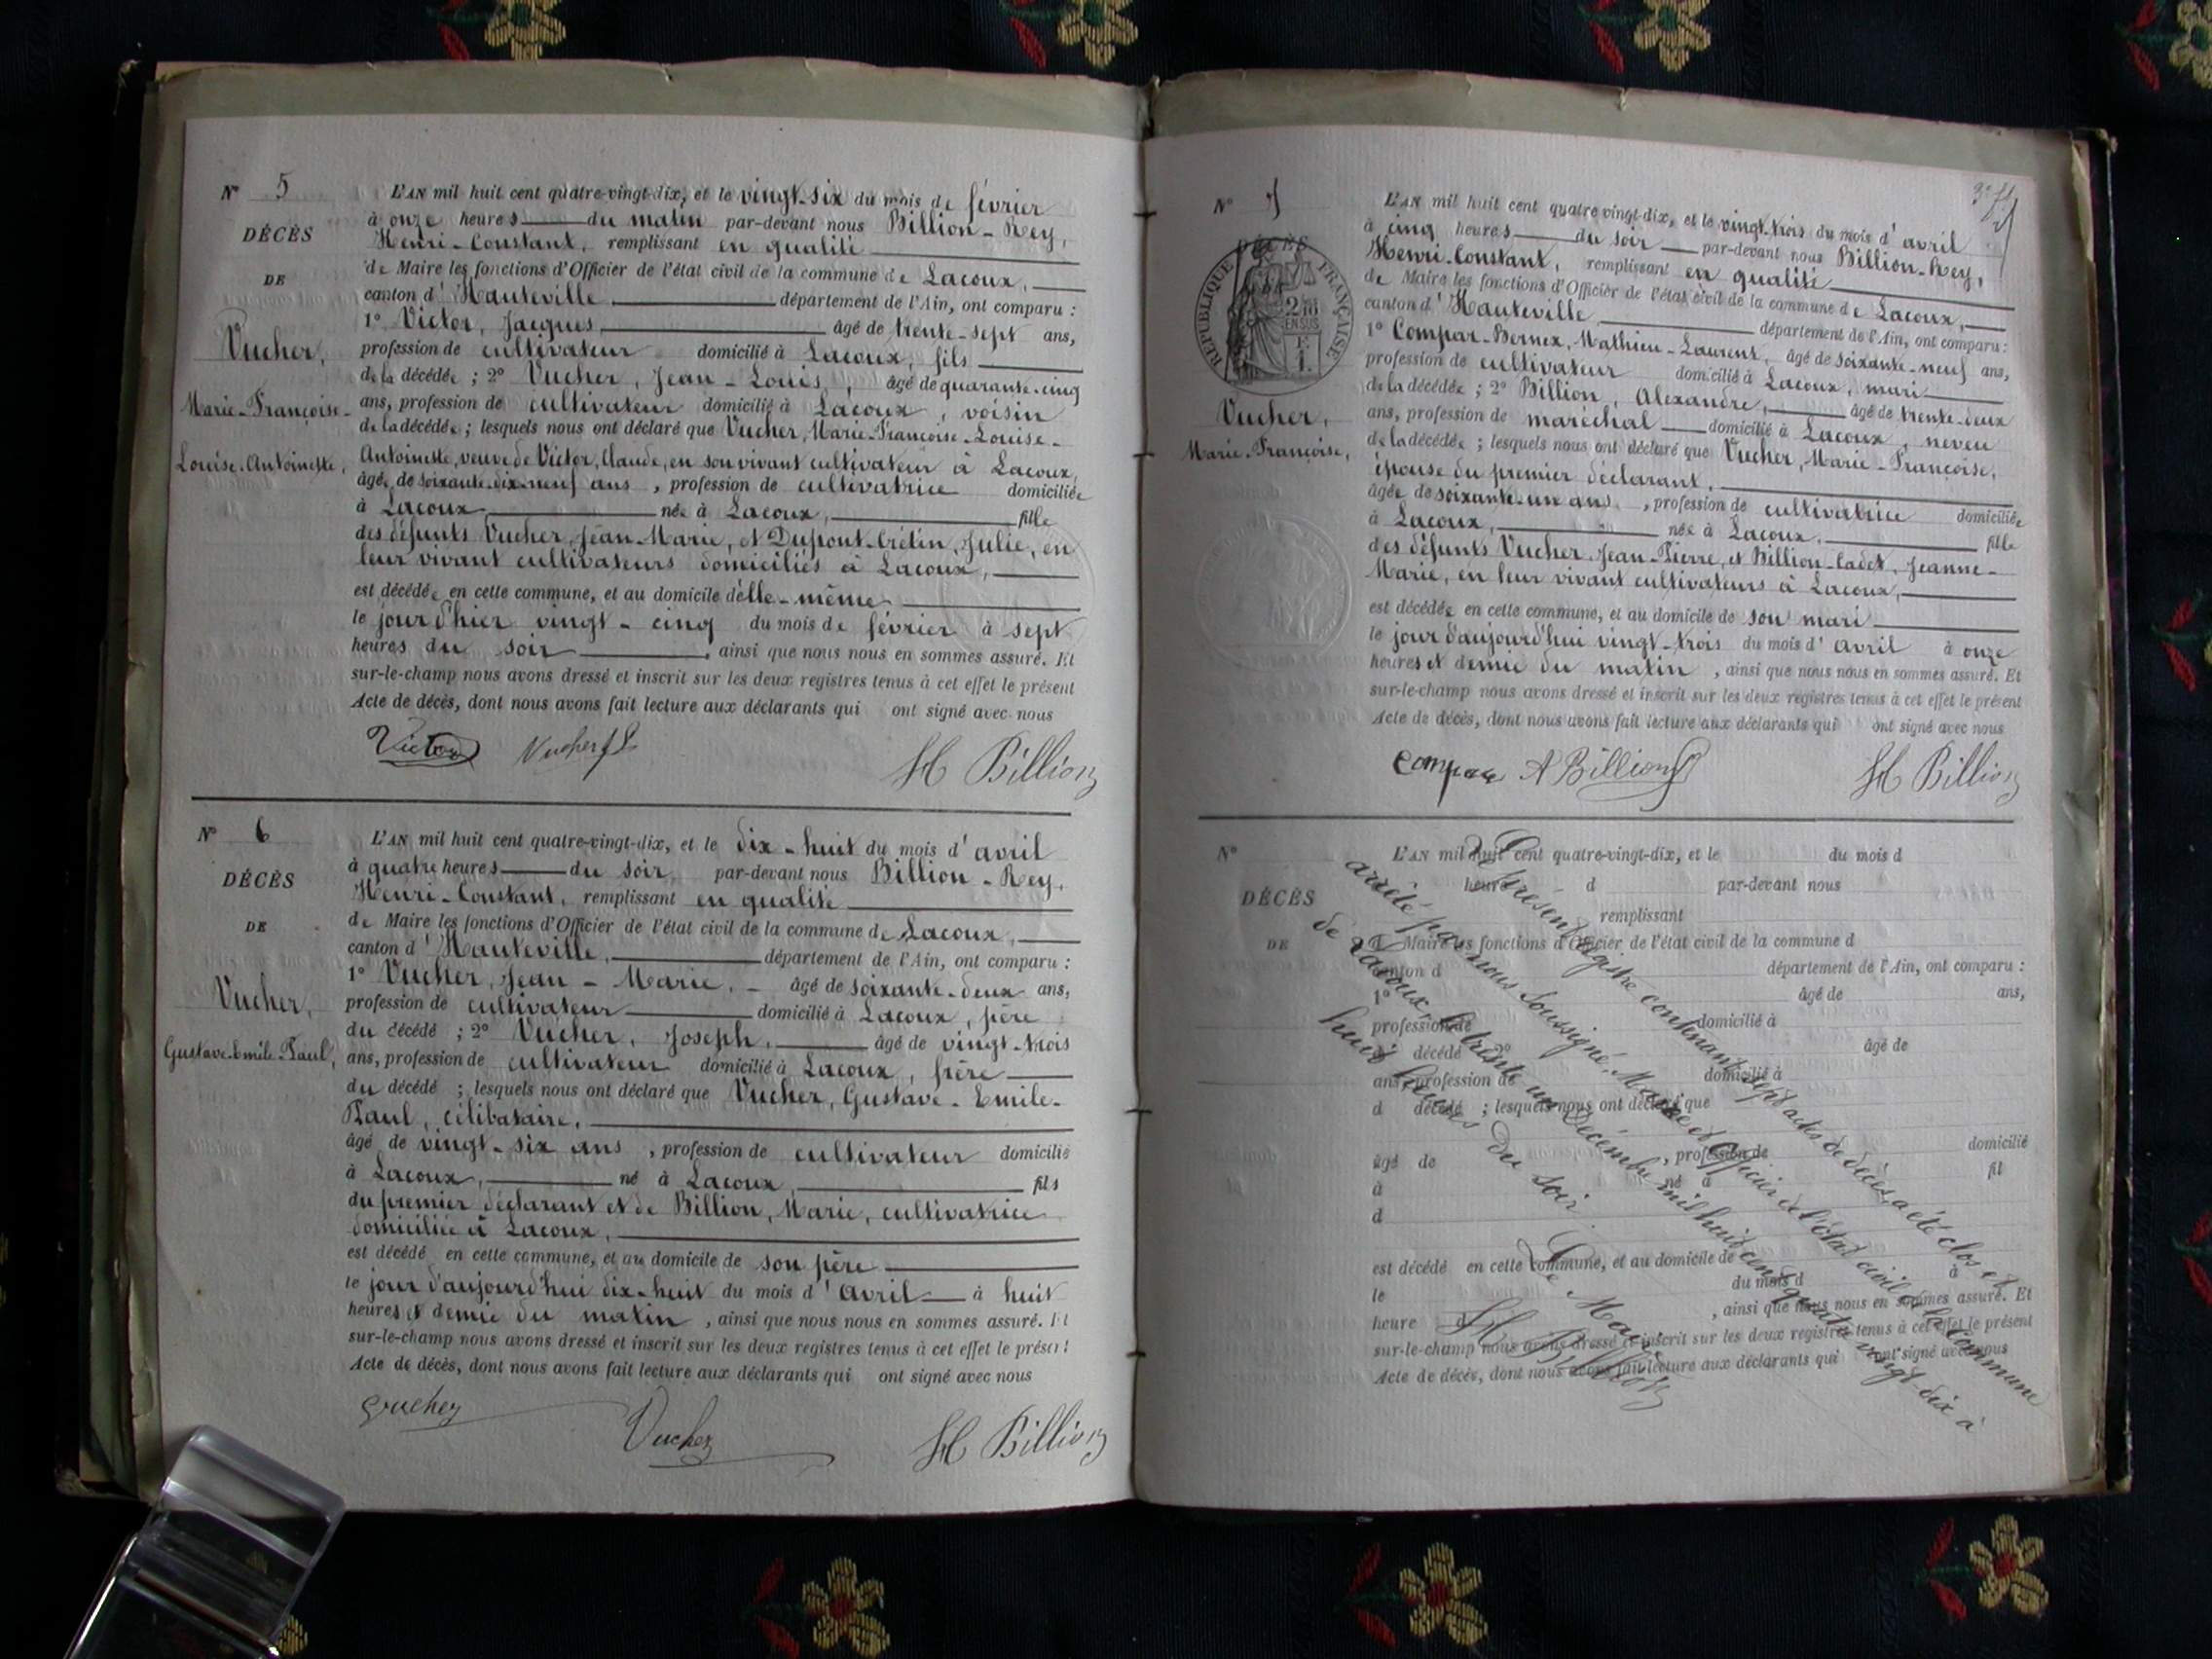 N° 5
DÉCÈS
DE
Vucher,
Marie-Françoise-
Louise-Antoinette,
L'AN mil huit cent quatre-vingt-dix, et le vingt-six du mois de février
à onze heures du matin par-devant nous Billion-Rey,
Henri-Constant, remplissant en qualité
de Maire les fonctions d'Officier de l'état civil de la commune de Lacoux,
canton d'Hauteville, département de l'Ain, ont comparu :
1° Victor, Jacques, âgé de trente-sept ans,
profession de cultivateur domicilié à Lacoux, fils
de la décédée ; 2° Vucher, Jean-Louis, âgé de quarante-cinq
ans, profession de cultivateur domicilié à Lacoux, voisin
de la décédée ; lesquels nous ont déclaré que Vucher, Marie-Françoise-Louise-
Antoinette, veuve de Victor, Claude, en son vivant cultivateur à Lacoux,
âgée de soixante-dix-neuf ans, profession de cultivatrice domiciliée
à Lacoux née à Lacoux, fille
des défunts Vucher, Jean-Marie, et Dupont-Crétin, Julie, en
leur vivant cultivateurs domiciliés à Lacoux,
est décédée en cette commune, et au domicile d'elle-même
le jour d'hier vingt-cinq du mois de février à sept
heures du soir, ainsi que nous nous en sommes assuré. Et
sur-le-champ nous avons dressé et inscrit sur les deux registres tenus à cet effet le présent
Acte de décès, dont nous avons fait lecture aux déclarants qui ont signé avec nous
Victor Vucher JL H Billion
N° 6
DÉCÈS
DE
Vucher,
Gustave-Emile-Paul,
L'AN mil huit cent quatre-vingt-dix, et le dix-huit du mois d'avril
à quatre heures du soir, par-devant nous Billion-Rey,
Henri-Constant, remplissant en qualité
de Maire les fonctions d'Officier de l'état civil de la commune de Lacoux,
canton d'Hauteville, département de l'Ain, ont comparu :
1° Vucher, Jean-Marie, - âgé de soixante-deux ans,
profession de cultivateur domicilié à Lacoux, père
du décédé ; 2° Vucher, Joseph, âgé de vingt-trois
ans, profession de cultivateur domicilié à Lacoux, frère
du décédé ; lesquels nous ont déclaré que Vucher, Gustave-Emile-
Paul, célibataire,
âgé de vingt-six ans, profession de cultivateur domicilié
à Lacoux, né à Lacoux, fils
du premier déclarant et de Billion, Marie, cultivatrice
domiciliée à Lacoux,
est décédé en cette commune, et au domicile de son père
le jour d'aujourd'hui dix-huit du mois d'Avril à huit
heures et demie du matin, ainsi que nous nous en sommes assuré. Et
sur-le-champ nous avons dressé et inscrit sur les deux registres tenus à cet effet le présent
Acte de décès, dont nous avons fait lecture aux déclarants qui ont signé avec nous
Vucher
Vucher H Billion
N° 7
DÉCÈS
RÉPUBLIQUE FRANÇAISE
Vucher,
Marie-Françoise,
L'AN mil huit cent quatre-vingt-dix, et le vingt-trois du mois d'avril
à cinq heures du soir par-devant nous Billion-Rey,
Henri-Constant, remplissant en qualité
de Maire les fonctions d'Officier de l'état civil de la commune de Lacoux,
canton d'Hauteville département de l'Ain, ont comparu :
1° Compar-Bernex, Mathieu-Laurent, âgé de soixante-neuf ans,
profession de cultivateur domicilié à Lacoux, mari
de la décédée ; 2° Billion, Alexandre, âgé de trente-deux
ans, profession de maréchal domicilié à Lacoux, neveu
de la décédée ; lesquels nous ont déclaré que Vucher, Marie-Françoise,
épouse du premier déclarant,
âgée de soixante-un ans, profession de cultivatrice domiciliée
à Lacoux, née à Lacoux, fille
des défunts Vucher, Jean-Pierre, et Billion-Cadet, Jeanne-
Marie, en leur vivant cultivateurs à Lacoux,
est décédée en cette commune, et au domicile de son mari
le jour d'aujourd'hui vingt-trois du mois d'avril à onze
heures et demie du matin, ainsi que nous nous en sommes assuré. Et
sur-le-champ nous avons dressé et inscrit sur les deux registres tenus à cet effet le présent
Acte de décès, dont nous avons fait lecture aux déclarants qui ont signé avec nous
Compar A Billion H Billion
N°
DÉCÈS
DE
L'AN mil huit cent quatre-vingt-dix, et le du mois d
heure d par-devant nous
remplissant
d Maire les fonctions d'Officier de l'état civil de la commune d
canton d département de l'Ain, ont comparu :
1° âgé de ans,
profession de domicilié à
d décédé 2° âgé de
ans, profession de domicilié à
d décédé ; lesquels nous ont déclaré que
âgé de , profession de domicilié
à né à fil
d
est décédé en cette commune, et au domicile de
le du mois d à
heure d , ainsi que nous nous en sommes assuré. Et
sur-le-champ nous avons dressé et inscrit sur les deux registres tenus à cet effet le présent
Acte de décès, dont nous avons fait lecture aux déclarants qui ont signé avec nous
Le présent registre contenant sept actes de décès, a été clos et
arrêté par nous soussigné, Maire et Officier de l'état civil de la commune
de Lacoux, le trente un Décembre mil huit cent quatre vingt-dix à
huit heures du soir.
Le Maire,
H Billion